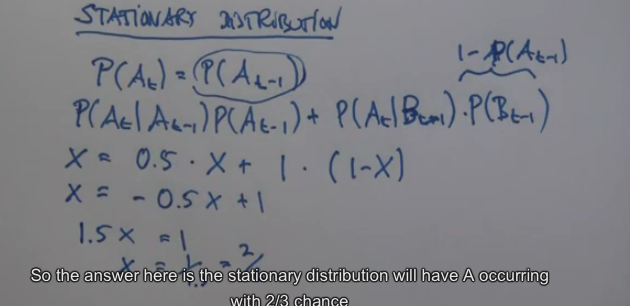 STATIONARY DISTRIBUTION
1-P(At-1)
P(At) = P(At-1)
P(At|At-1)P(At-1) + P(At|Bt-1)·P(Bt-1)
X = 0.5·X + 1·(1-X)
X = -0.5X + 1
1.5X = 1
X = 1/1.5 = 2/
So the answer here is the stationary distribution will have A occurring
with 2/3 chance